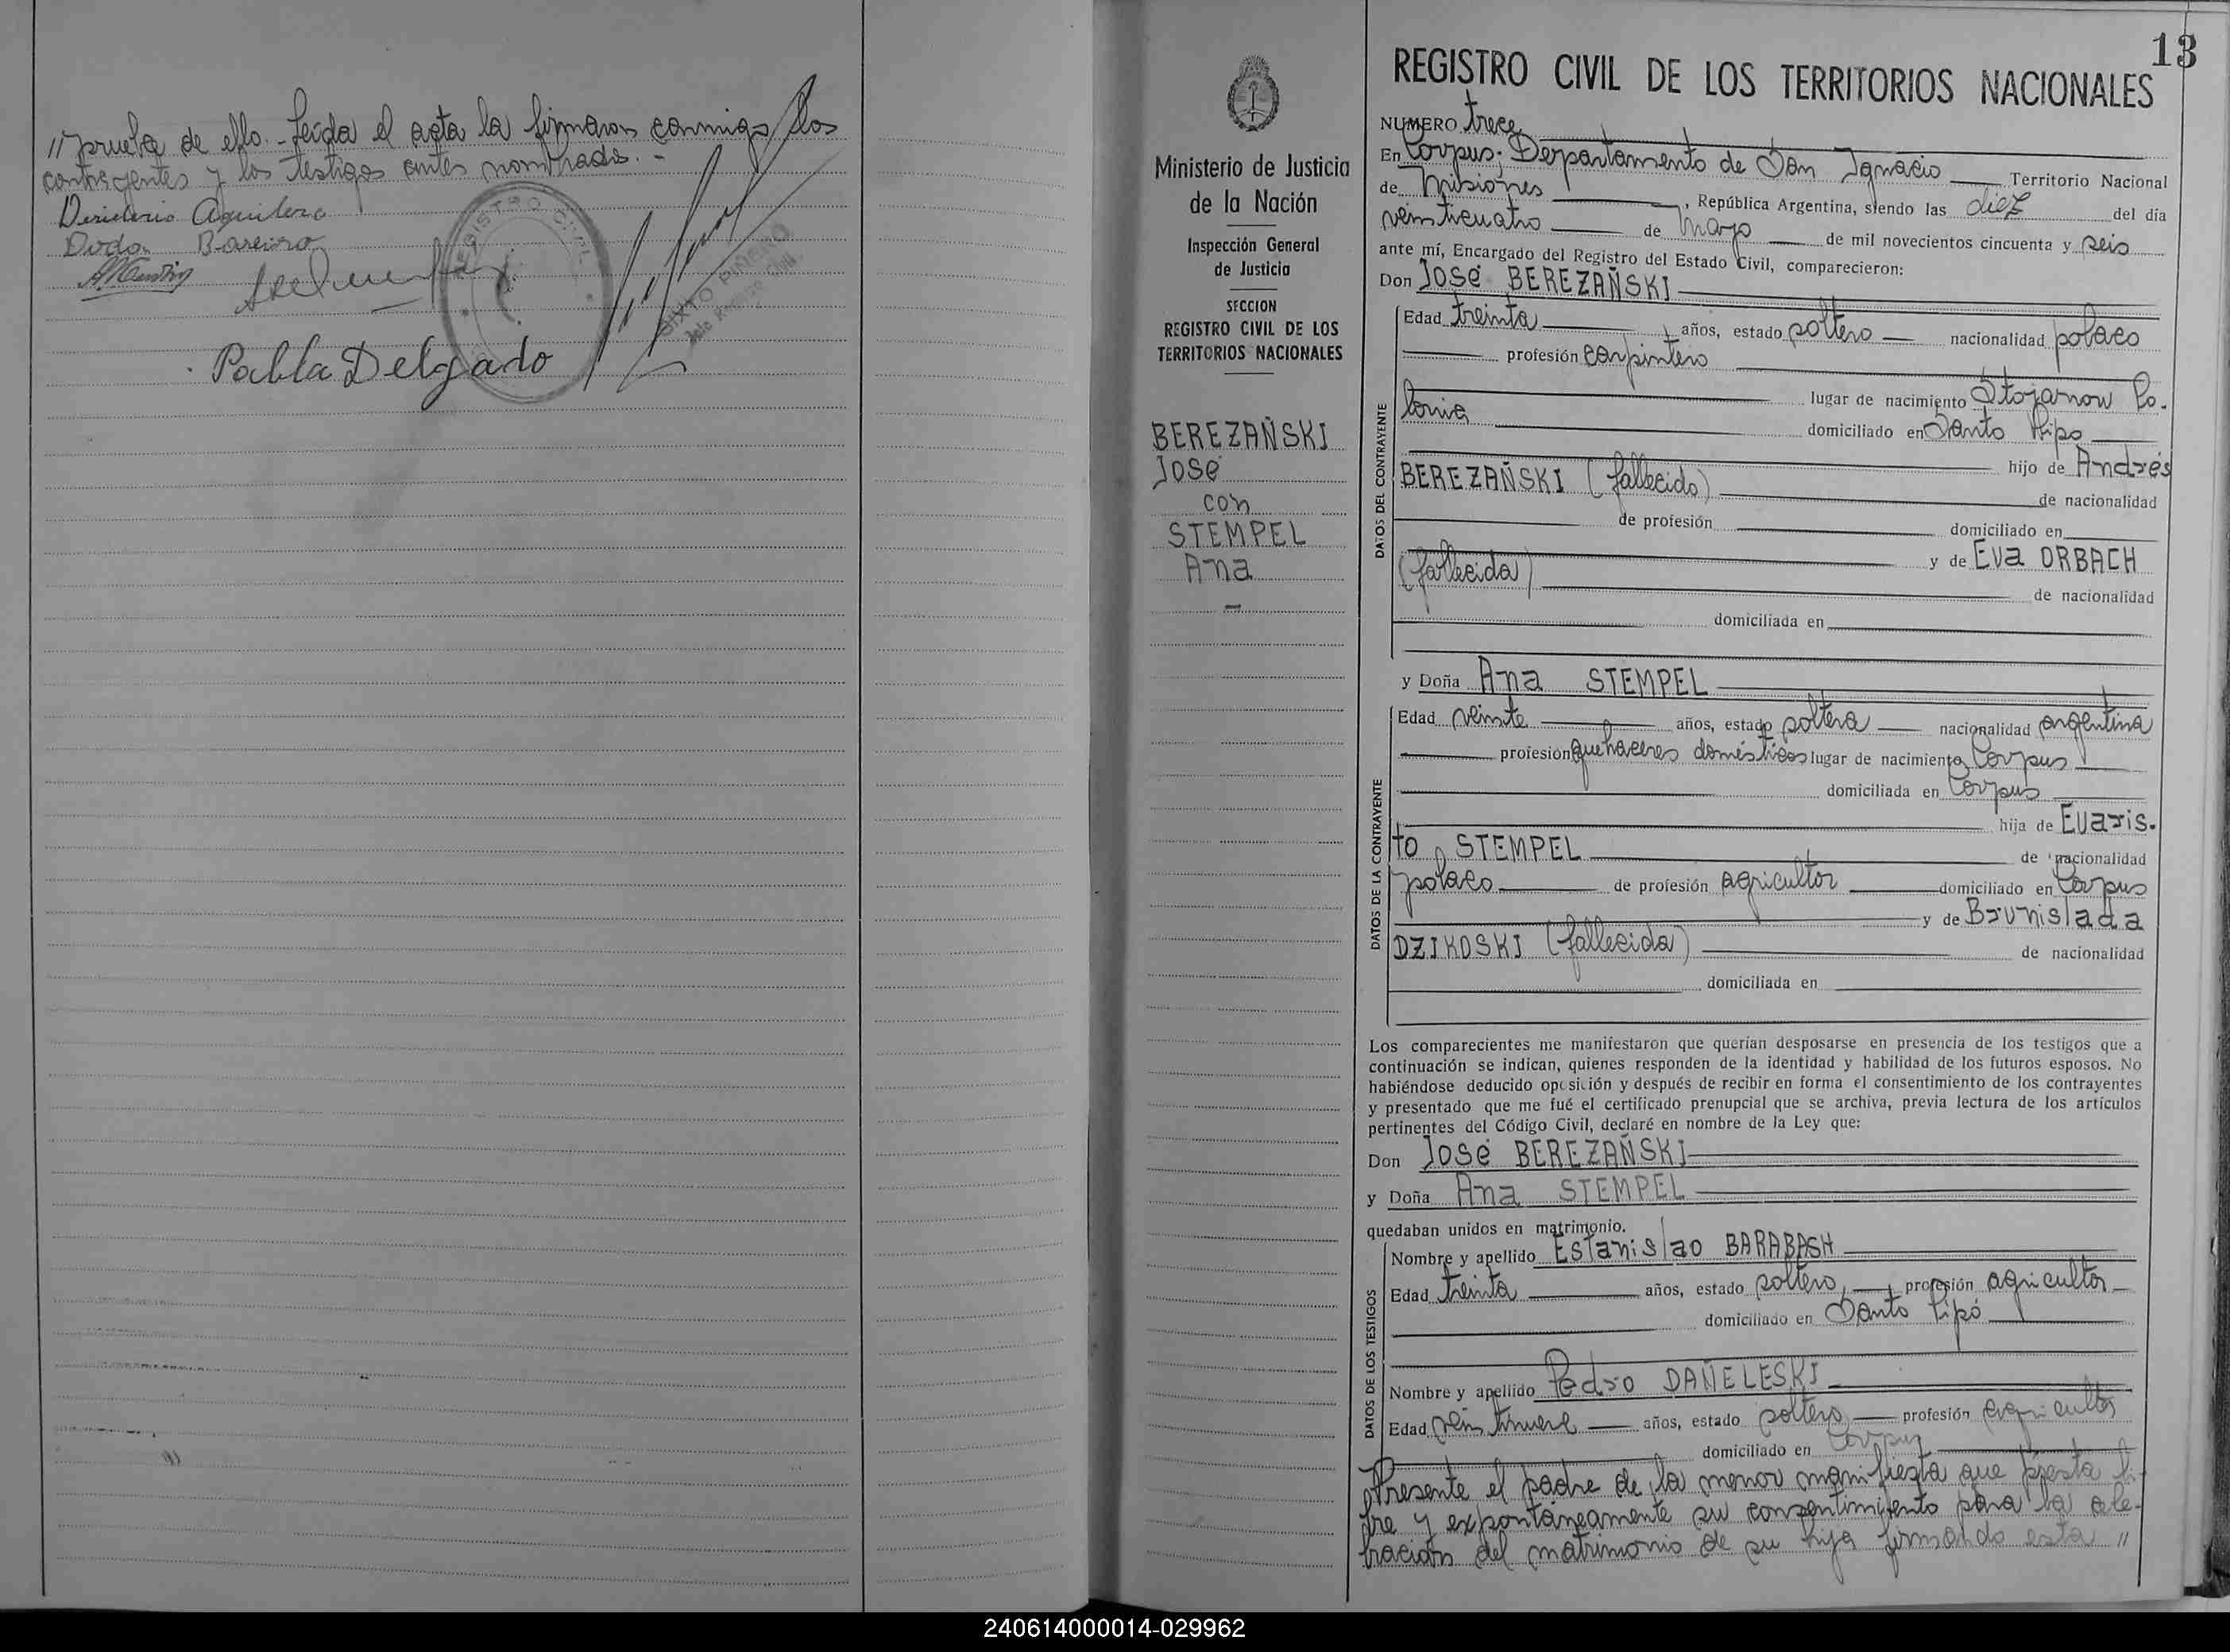 //prueba de ello.- Leída el acta la firmaron conmigo los
contrayentes y los testigos antes nombrados.-
Desiderio Aguilera
Barreiro
Pabla Delgado
REGISTRO CIVIL
SIXTO PIÑEIRO
Ministerio de Justicia
de la Nación
Inspección General
de Justicia
SECCION
REGISTRO CIVIL DE LOS
TERRITORIOS NACIONALES
BEREZAÑSKI
José
con
STEMPEL
Ana
-
13
REGISTRO CIVIL DE LOS TERRITORIOS NACIONALES
NUMERO trece
En Corpus; Departamento de San Ignacio Territorio Nacional
de Misiones, República Argentina, siendo las diez del día
veinticuatro de Mayo de mil novecientos cincuenta y seis
ante mí, Encargado del Registro del Estado Civil, comparecieron:
Don José BEREZAÑSKI
DATOS DEL CONTRAYENTE
Edad treinta años, estado soltero nacionalidad polaco
profesión carpintero
lugar de nacimiento Stojanow Po-
lonia domiciliado en Santo Pipo
hijo de Andrés
BEREZAÑSKI (fallecido) de nacionalidad
de profesión domiciliado en
y de Eva ORBACH
(fallecida) de nacionalidad
domiciliada en
y Doña Ana STEMPEL
DATOS DE LA CONTRAYENTE
Edad veinte años, estado soltera nacionalidad argentina
profesión quehaceres domésticos lugar de nacimiento Corpus
domiciliada en Corpus
hija de Evaris-
to STEMPEL de nacionalidad
polaco de profesión agricultor domiciliado en Corpus
y de Brunislada
DZIKOSKI (fallecida) de nacionalidad
domiciliada en
Los comparecientes me manifestaron que querían desposarse en presencia de los testigos que a
continuación se indican, quienes responden de la identidad y habilidad de los futuros esposos. No
habiéndose deducido oposición y después de recibir en forma el consentimiento de los contrayentes
y presentado que me fué el certificado prenupcial que se archiva, previa lectura de los artículos
pertinentes del Código Civil, declaré en nombre de la Ley que:
Don José BEREZAÑSKI
y Doña Ana STEMPEL
quedaban unidos en matrimonio.
DATOS DE LOS TESTIGOS
Nombre y apellido Estanislao BARABASH
Edad treinta años, estado soltero, profesión agricultor
domiciliado en Santo Pipó
Nombre y apellido Pedro DAÑELESKI
Edad veintinueve años, estado soltero profesión agricultor
domiciliado en Corpus
Presente el padre de la menor manifiesta que presta li-
bre y expontáneamente su consentimiento para la cele-
bración del matrimonio de su hija firmando esta //
240614000014-029962